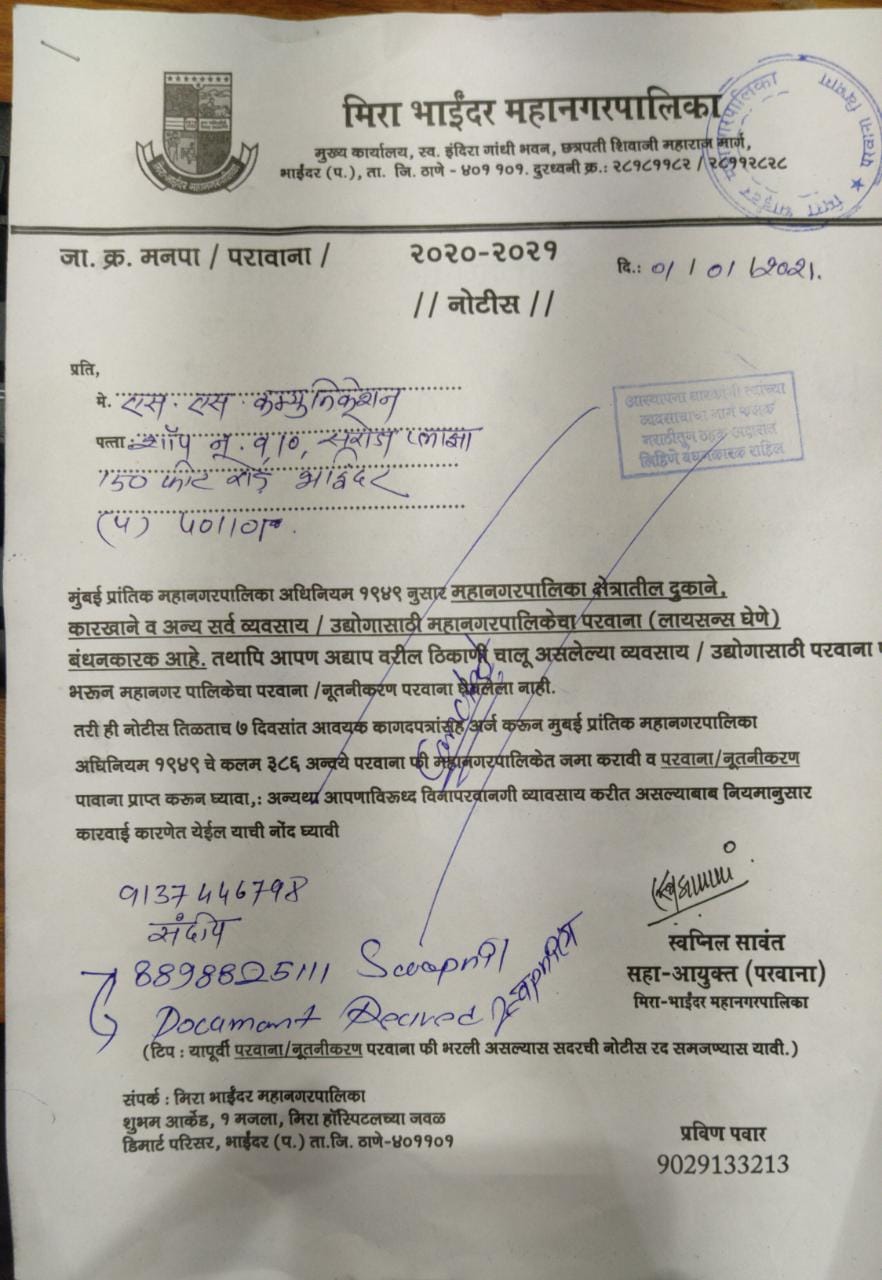 मिरा भाईंदर महानगरपालिका
मुख्य कार्यालय, स्व. इंदिरा गांधी भवन, छत्रपती शिवाजी महाराज मार्ग,
भाईंदर (प.), ता. जि. ठाणे - ४०१ १०१. दुरध्वनी क्र.: २८१८११८२ / २८११२८२८
परवाना विभाग
जा. क्र. मनपा / परावाना / २०२०-२०२१
दि.: 01 / 01 / 2021.
// नोटीस //
प्रति,
मे. एस. एस कम्युनिकेशन
पत्ता: शॉप नं. व 10, प्लाझा
150 फीट रोड भाईंदर
(प) 401101.
आस्थापना धारकांनी त्यांच्या
व्यवसायाचा नाम फलक
मराठीतून ठळक अक्षरात
लिहिणे बंधनकारक राहिल
मुंबई प्रांतिक महानगरपालिका अधिनियम १९४९ नुसार महानगरपालिका क्षेत्रातील दुकाने,
कारखाने व अन्य सर्व व्यवसाय / उद्योगासाठी महानगरपालिकेचा परवाना (लायसन्स घेणे)
बंधनकारक आहे. तथापि आपण अद्याप वरील ठिकाणी चालू असलेल्या व्यवसाय / उद्योगासाठी परवाना
भरून महानगर पालिकेचा परवाना /नूतनीकरण परवाना घेतलेला नाही.
तरी ही नोटीस तिळताच ७ दिवसांत आवयक कागदपत्रांसह अर्ज करून मुंबई प्रांतिक महानगरपालिका
अधिनियम १९४९ चे कलम ३८६ अन्वये परवाना फी महानगरपालिकेत जमा करावी व परवाना/नूतनीकरण
पावाना प्राप्त करून घ्यावा,: अन्यथा आपणाविरूध्द विनापरवानगी व्यावसाय करीत असल्याबाब नियमानुसार
कारवाई कारणेत येईल याची नोंद घ्यावी
9137446798
संदीप
8898825111 Swapnil
Documant Recived
स्वप्निल सावंत
सहा-आयुक्त (परवाना)
मिरा-भाईंदर महानगरपालिका
(टिप : यापूर्वी परवाना/नूतनीकरण परवाना फी भरली असल्यास सदरची नोटीस रद समजण्यास यावी.)
संपर्क : मिरा भाईंदर महानगरपालिका
शुभम आर्केड, १ मजला, मिरा हॉस्पिटलच्या जवळ
डिमार्ट परिसर, भाईंदर (प.) ता.जि. ठाणे-४०११०१
प्रविण पवार
9029133213